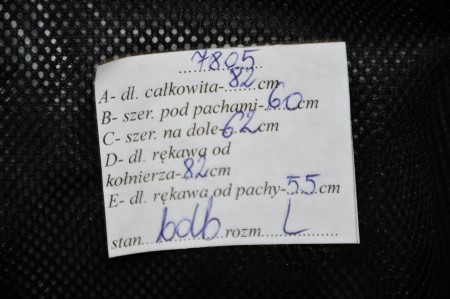 7805
A- dł. całkowita-82cm
B- szer. pod pachami-60cm
C- szer. na dole-62cm
D- dł. rękawa od
kołnierza-82cm
E- dł. rękawa od pachy-55cm
stan bdb rozm L